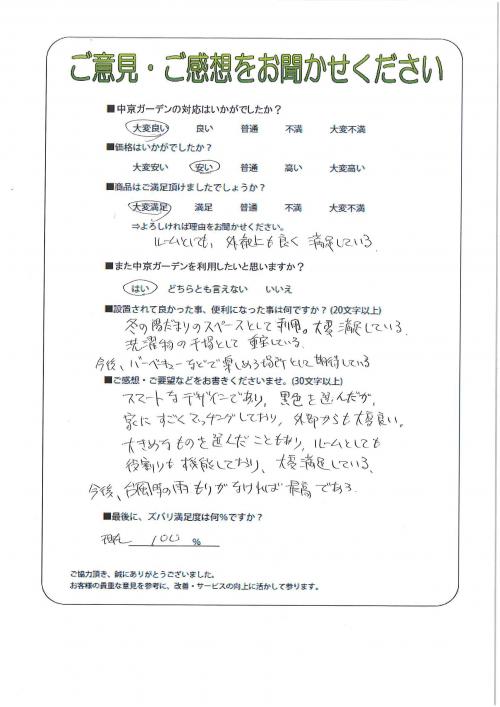 ご意見・ご感想をお聞かせください
■中京ガーデンの対応はいかがでしたか?
大変良い 良い 普通 不満 大変不満
■価格はいかがでしたか?
大変安い 安い 普通 高い 大変高い
■商品はご満足頂けましたでしょうか?
大変満足 満足 普通 不満 大変不満
⇒よろしければ理由をお聞かせください。
ルームとしても、外観上も良く満足している
■また中京ガーデンを利用したいと思いますか?
はい どちらとも言えない いいえ
■設置されて良かった事、便利になった事は何ですか?(20文字以上)
冬の陽だまりのスペースとして利用。大変満足している。
洗濯物の干場として重宝している。
今後、バーベキューなどで楽しめる場所として期待している
■ご感想・ご要望などをお書きくださいませ。(30文字以上)
スマートなデザインであり、黒色を選んだが、
家にすごくマッチングしており、外部からも大変良い。
大きめなものを選んだこともあり、ルームとしても
役割りも機能しており、大変満足している。
今後、台風時の雨もりがなければ最高である。
■最後に、ズバリ満足度は何%ですか?
100 %
ご協力頂き、誠にありがとうございました。
お客様の貴重な意見を参考に、改善・サービスの向上に活かして参ります。